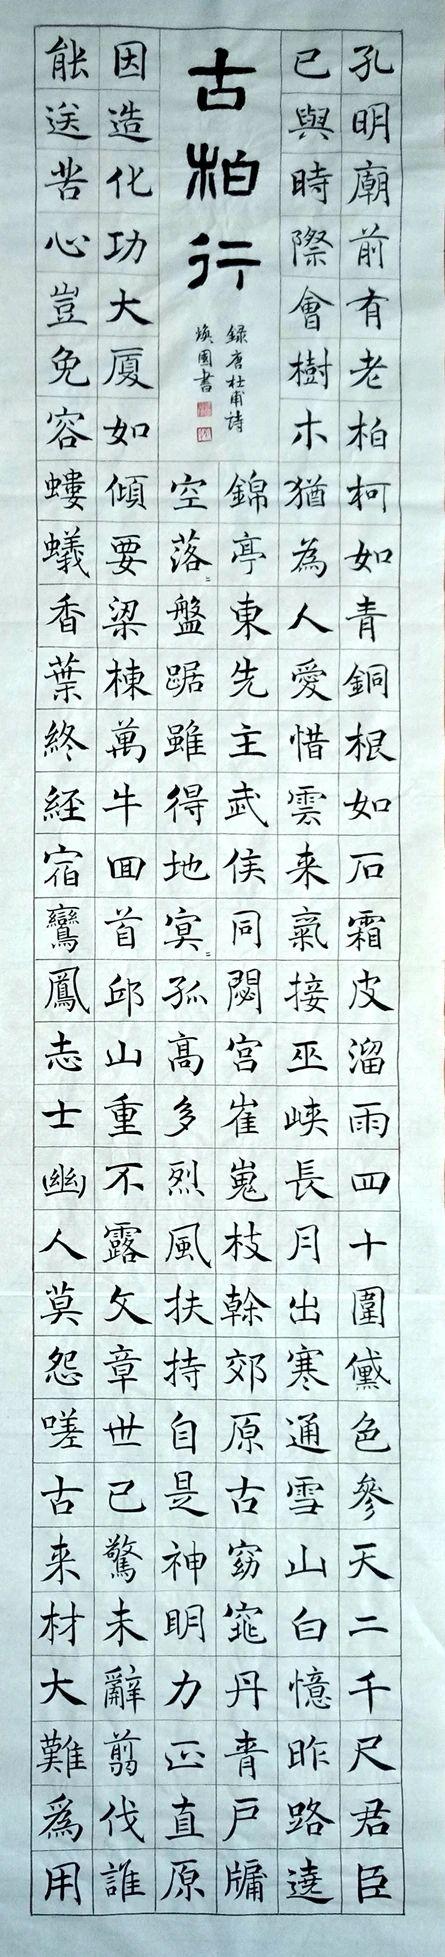 孔明廟前有老柏柯如青銅根如石霜皮溜雨四十圍黛色參天二千尺君臣
已與時際會樹木猶為人愛惜雲来氣接巫峽長月出寒通雪山白憶昨路遶
古柏行
録唐杜甫詩
煥國書
錦亭東先主武侯同閟宮崔嵬枝榦郊原古窈窕丹青戶牖
空落〻盤踞雖得地冥〻孤高多烈風扶持自是神明力正直原
因造化功大厦如傾要梁棟萬牛囬首邱山重不露文章世已驚未辭翦伐誰
能送苦心豈免容螻蟻香葉終経宿鸞鳳志士幽人莫怨嗟古来材大難為用